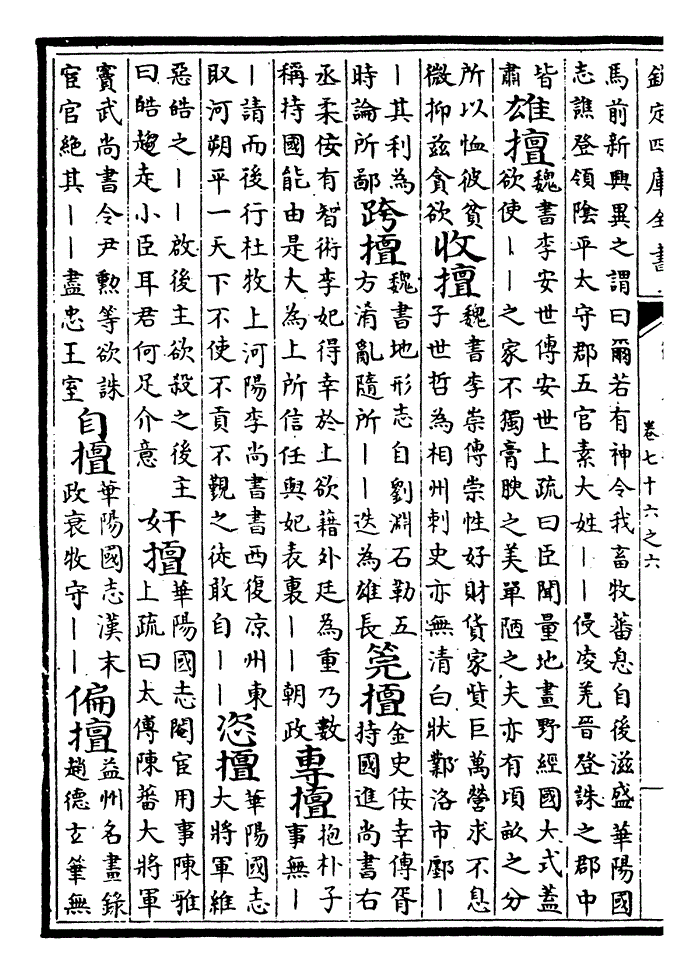 欽定四庫全書
卷七十六之六
馬前新興異之謂曰爾若有神令我畜牧蕃息自後滋盛華陽國
志譙登領陰平太守郡五官素大姓丨丨侵凌羌晉登誅之郡中
皆
肅
雄擅
魏書李安世傳安世上疏曰臣聞量地畫野經國大式蓋
欲使丨丨之家不獨膏腴之美單陋之夫亦有頃畝之分
所以恤彼貧
微抑兹貪欲
收擅
魏書李崇傳崇性好財貨家貲巨萬營求不息
子世哲為相州刺史亦無清白狀鄴洛市鄽丨
丨其利為
時論所鄙
跨擅
魏書地形志自劉淵石勒五
方淆亂隨所丨丨迭為雄長
筦擅
金史佞幸傳胥
持國進尚書右
丞柔佞有智術李妃得幸於上欲藉外廷為重乃數
稱持國能由是大為上所信任與妃表裏丨丨朝政
専擅
抱朴子
事無丨
丨請而後行杜牧上河陽李尚書書西復凉州東
取河朔平一天下不使不貢不覲之徒敢自丨丨
恣擅
華陽國志
大將軍維
惡皓之丨丨啟後主欲殺之後主
曰皓趨走小臣耳君何足介意
奸擅
華陽國志閹宦用事陳雅
上疏曰太傅陳蕃大將軍
竇武尚書令尹勲等欲誅
宦官絶其丨丨盡忠王室
自擅
華陽國志漢末
政衰牧守丨丨
偏擅
益州名畫錄
趙德玄筆無